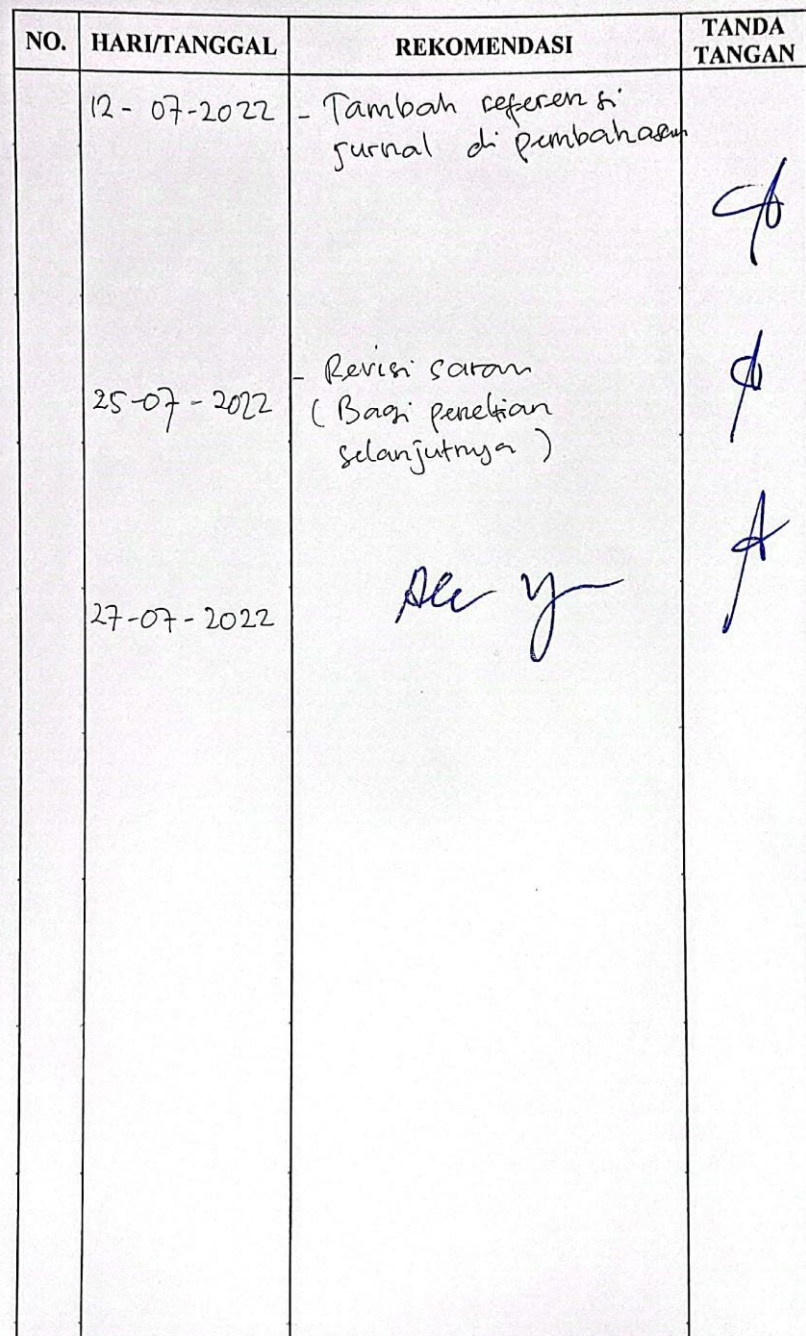 NO. HARI/TANGGAL REKOMENDASI TANDA TANGAN
12-07-2022 - Tambah referensi
jurnal di pembahasan
- Revisi saran
25-07-2022 (Bagi penelitian
selanjutnya)
27-07-2022